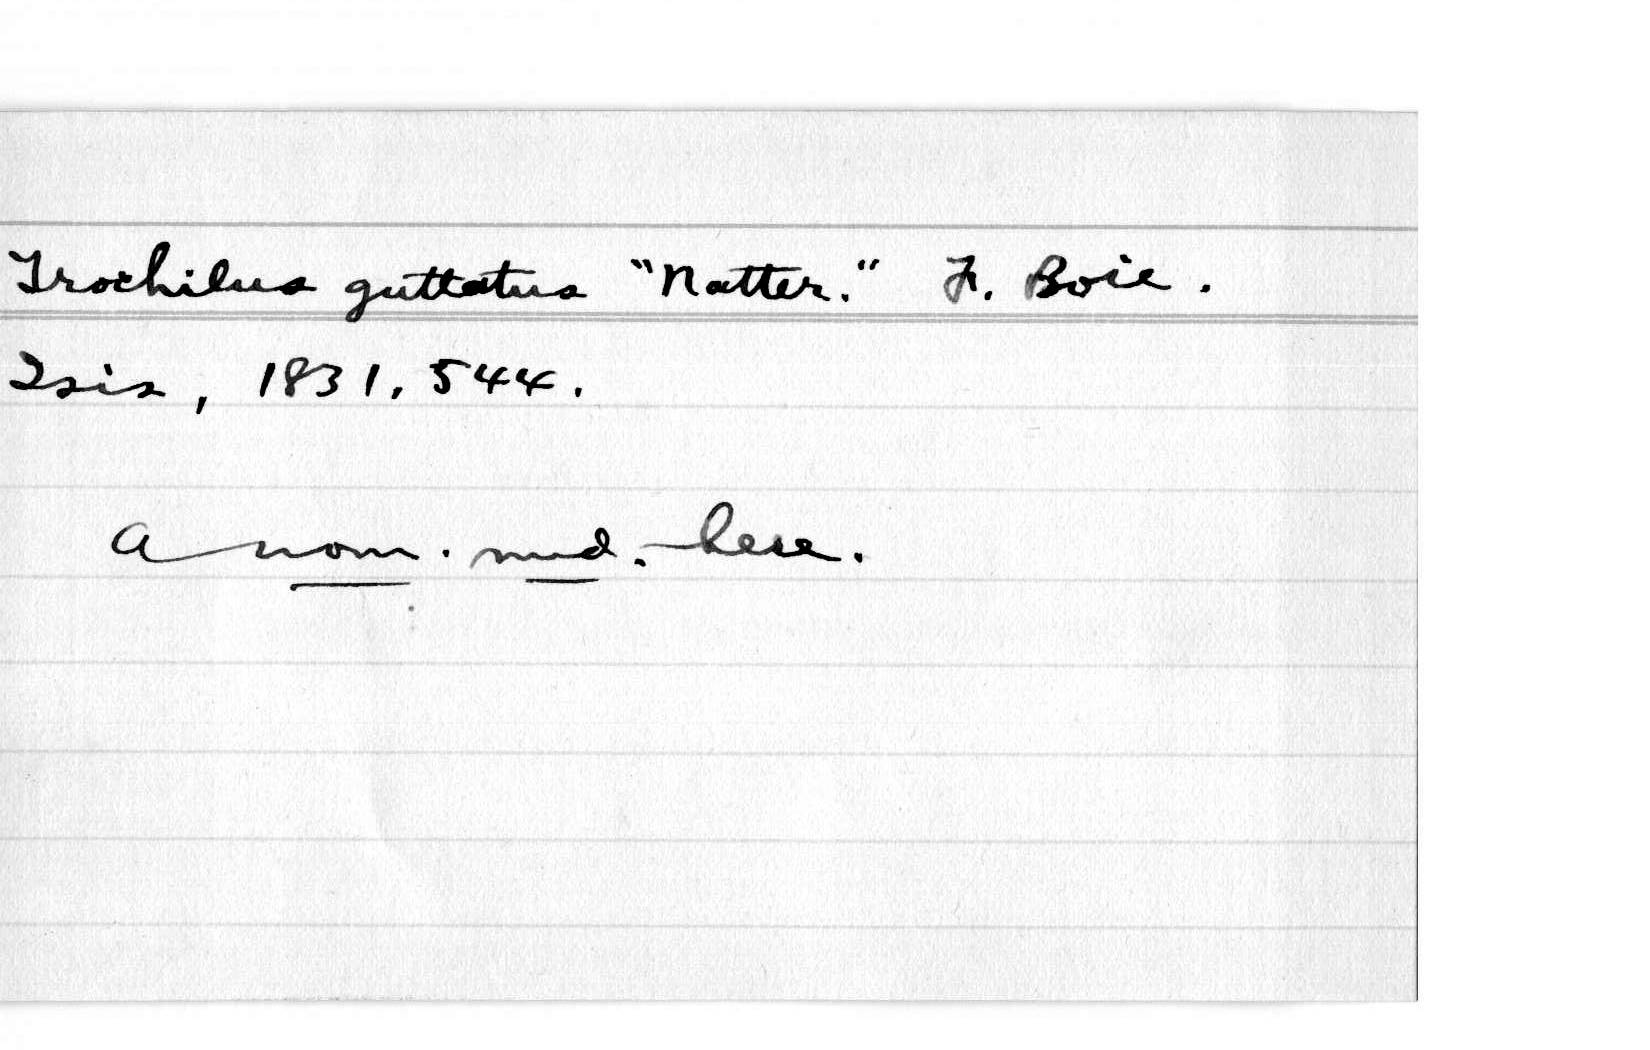 Trochilus guttatus "Natter." F. Boie.
Isis, 1831, 544.
A nom. nud. here.